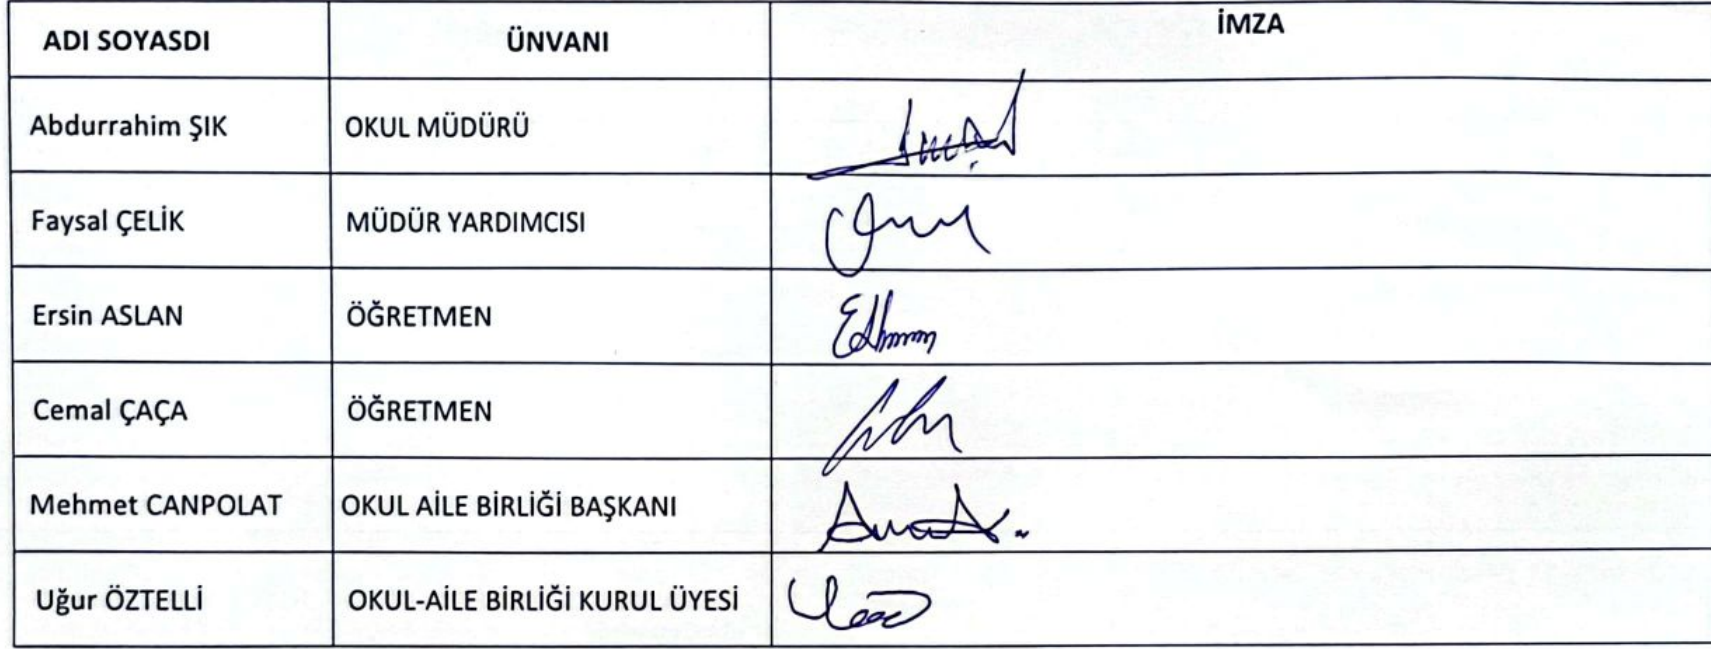 ADI SOYASDI ÜNVANI İMZA
Abdurrahim ŞIK OKUL MÜDÜRÜ
Faysal ÇELİK MÜDÜR YARDIMCISI
Ersin ASLAN ÖĞRETMEN
Cemal ÇAÇA ÖĞRETMEN
Mehmet CANPOLAT OKUL AİLE BİRLİĞİ BAŞKANI
Uğur ÖZTELLİ OKUL-AİLE BİRLİĞİ KURUL ÜYESİ